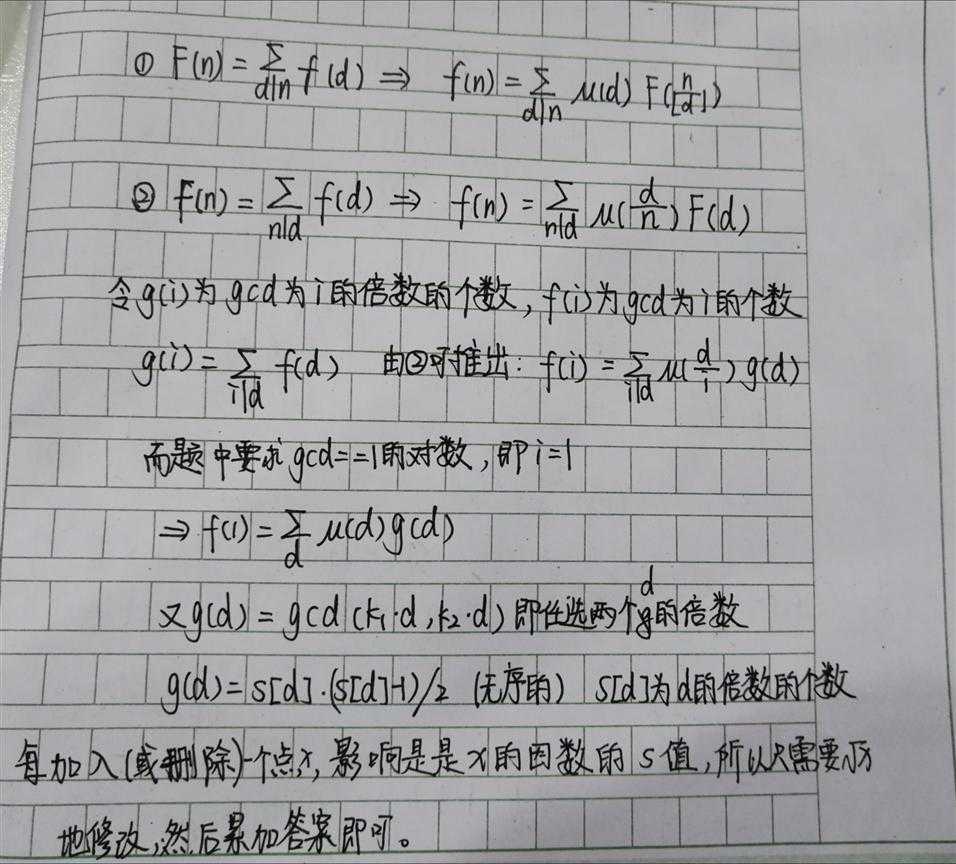 ① F(n) = ∑_{d|n} f(d) ⇒ f(n) = ∑_{d|n} μ(d) F([n/d])
② F(n) = ∑_{n|d} f(d) ⇒ f(n) = ∑_{n|d} μ(d/n) F(d)
令g(i)为gcd为i的倍数的个数,f(i)为gcd为i的个数
g(i) = ∑_{i|d} f(d) 由②可推出: f(i) = ∑_{i|d} μ(d/i) g(d)
而题中要求gcd==1的对数,即i=1
⇒ f(1) = ∑_{d} μ(d) g(d)
又g(d) = gcd(k₁·d, k₂·d) 即任选两个d的倍数
g(d) = s[d]·(s[d]-1)/2 (无序的) s[d]为d的倍数的个数
每加入(或删除)一个点x,影响是是x的因数的s值,所以只需要√x
地修改,然后累加答案即可。